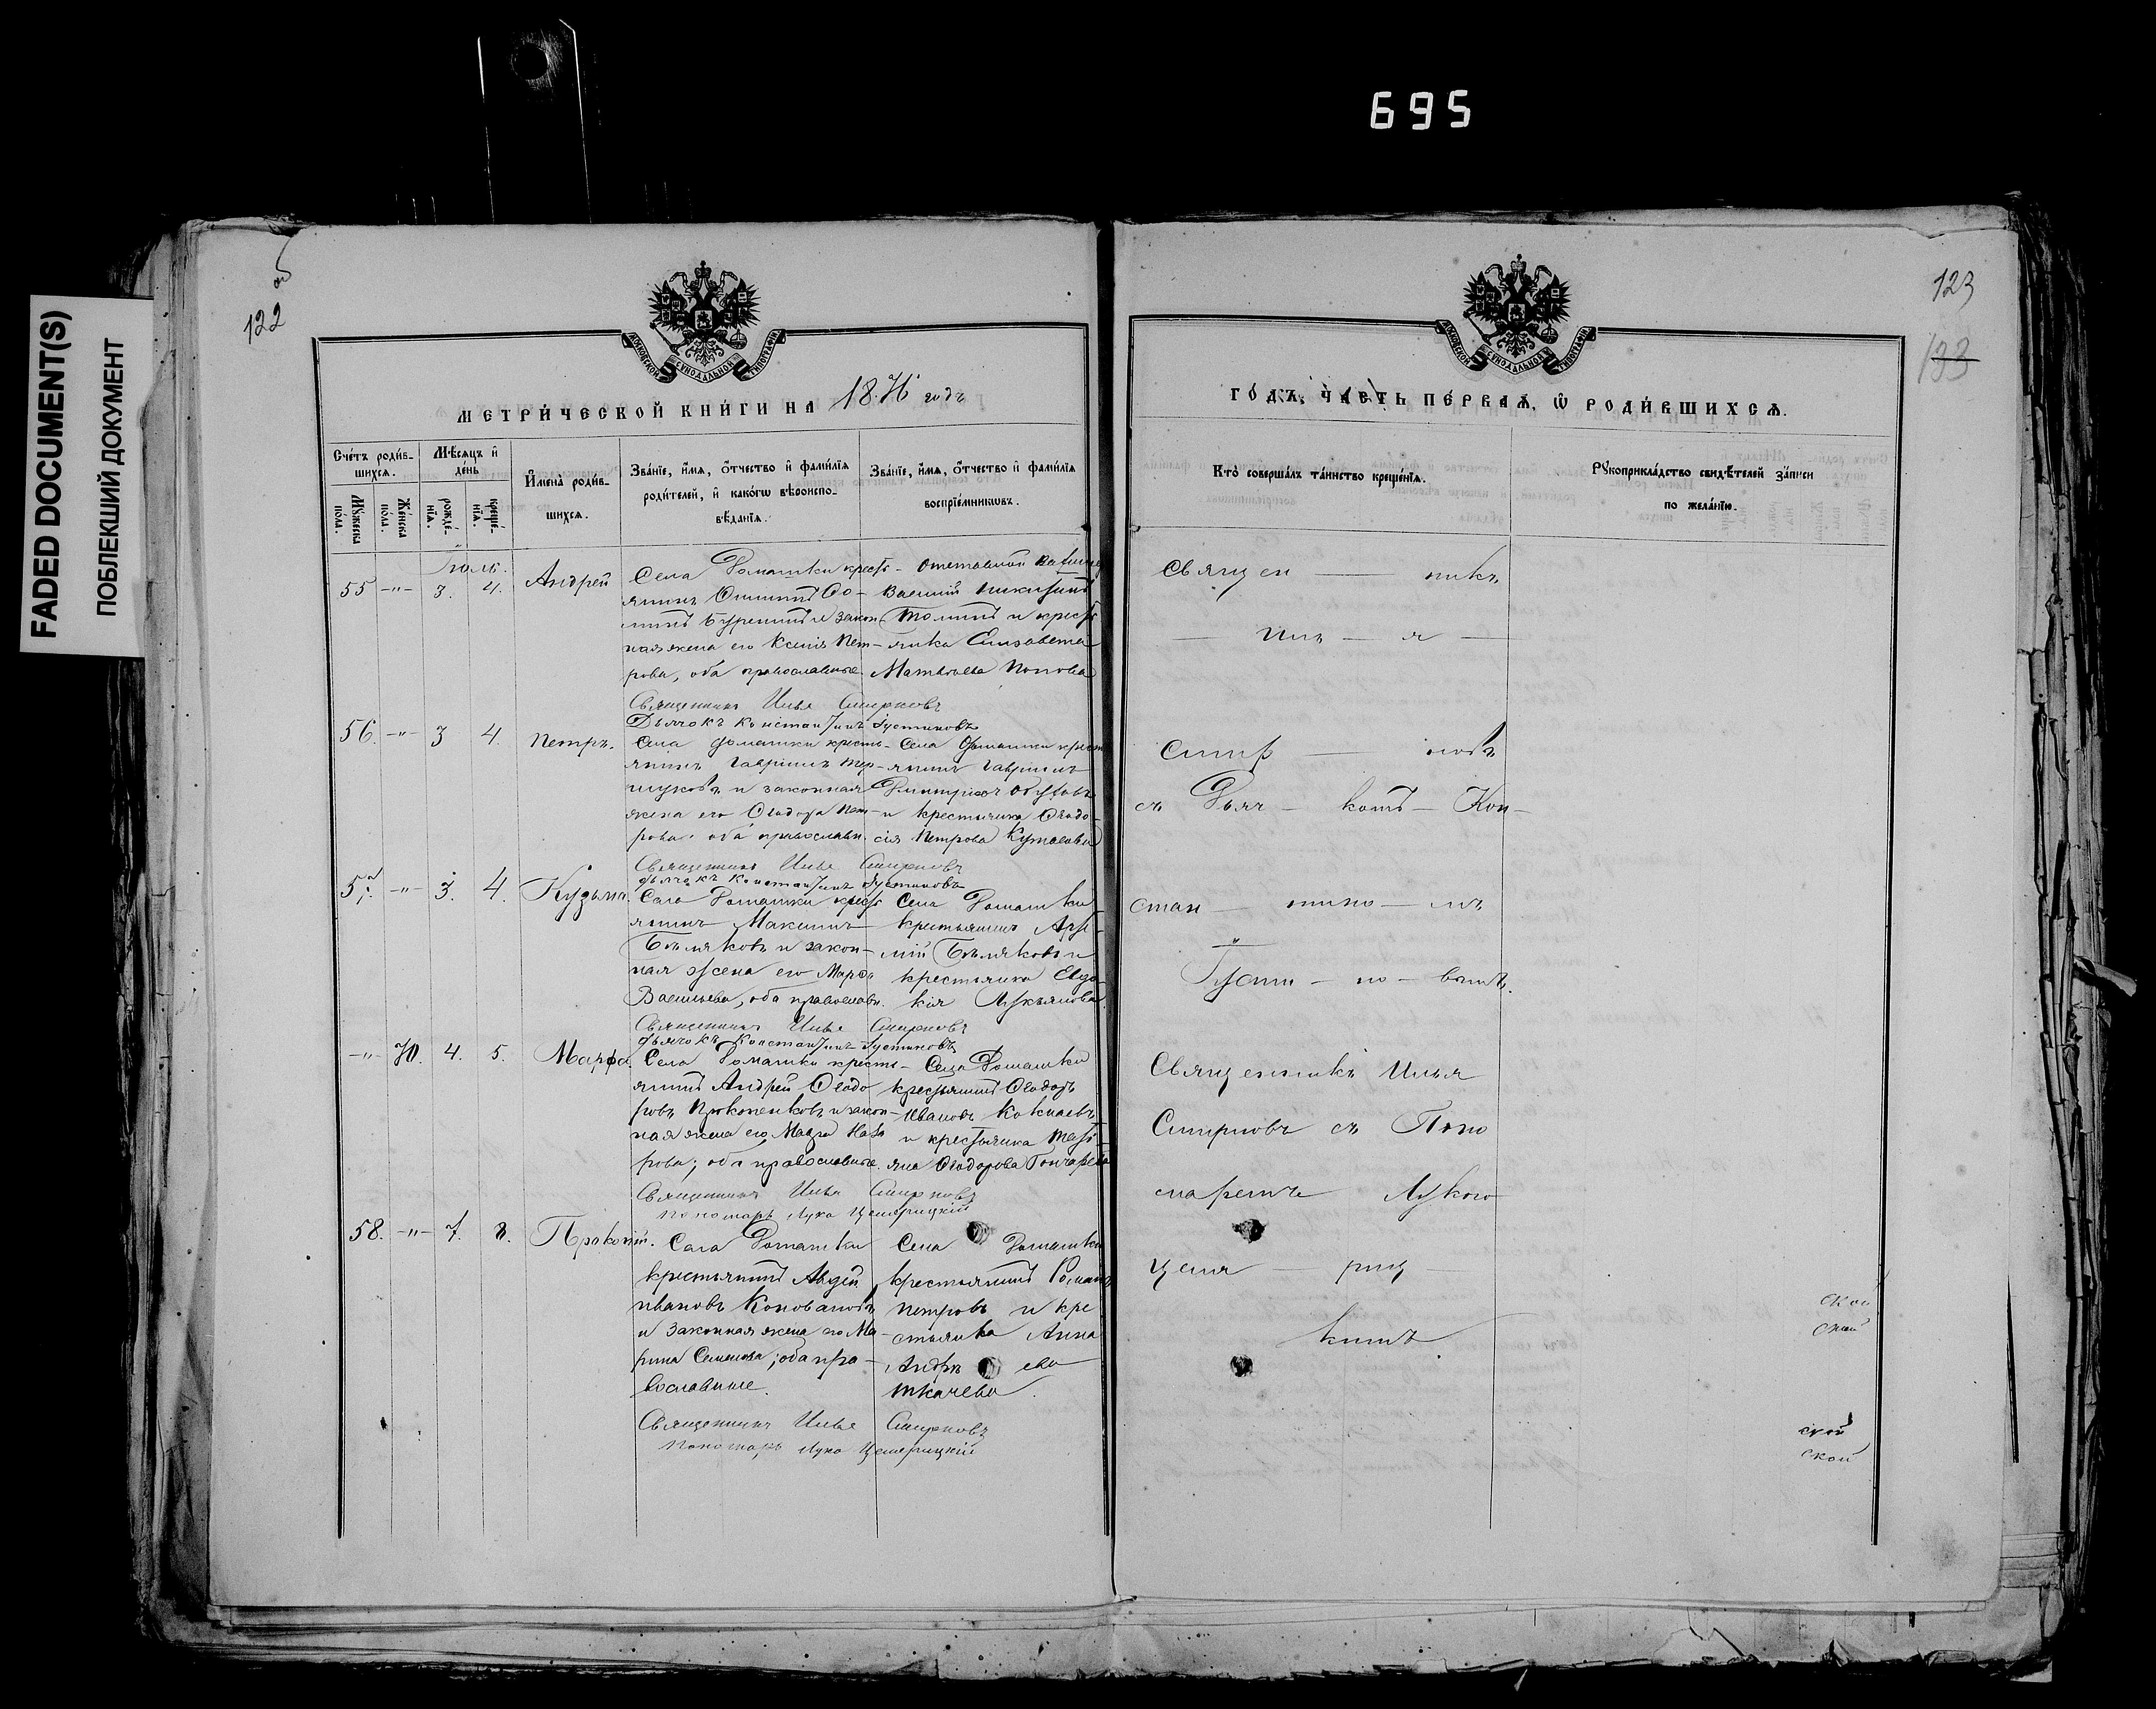 695
FADED DOCUMENT(S)
ПОБЛЕКШИЙ ДОКУМЕНТ
122
об
123
133
МОСКОВСКОЙ СѴНОДАЛЬНОЙ ТИПОГРАФІИ
МЕТРИ́ЧЕСКОЙ КНИ́ГИ НА 1876 годъ
Сче́тъ роди́в-
шихсѧ.
Мꙋ́жеска по́ла.
Же́нска по́ла.
Мѣ́сѧцъ и҆ де́нь
рожде́-нїѧ.
креще́-нїѧ.
И҆мена̀ роди́в-
шихсѧ.
Зва́нїе, и҆́мѧ, ѻ҆́тчество и҆ фами́лїѧ
роди́телей, и҆ како́гѡ вѣроиспо-
вѣ́данїѧ.
Зва́нїе, и҆́мѧ, ѻ҆́тчество и҆ фами́лїѧ
воспрїе́мникѡвъ.
Іюль.
55 -"- 3. 4. Андрей
Села Ромашки кресть-
янинъ
и закон-
ная жена его Ксенія Пет-
рова, оба православные.
Василій Никитинъ
и кресть-
янка Елизавета
Матвѣева Попова
Священникъ Илья Смирновъ
Дьячокъ Константинъ Іустиновъ
56. -"- 3 4. Петръ.
Села Ромашки кресть-
янинъ Гавріилъ Тер-
и законная
жена его Ѳеодора Пет-
рова, оба православн.
Села Ромашки крест
янинъ Гавріилъ
Димитріевъ
и крестьянка Ѳеодо-
сія Петрова
Священникъ Илья Смирновъ
Дьячокъ Константинъ Іустиновъ
57. -"- 3. 4. Кузьма.
Села Ромашки кресть
янинъ Максимъ
Бѣляковъ и закон-
ная жена его Марѳа
Васильева, оба православн.
Села Ромашки
крестьянинъ Арсе-
ній Бѣляковъ и
крестьянка Евдо-
кія Лукьянова
Священникъ Илья Смирновъ
Дьячокъ Константинъ Іустиновъ
-"- 70. 4. 5. Марфа.
Села Ромашки кресть-
янинъ Андрей Ѳеодо
ровъ Прокопенковъ и закон-
ная жена его Мавра Наза
рова; оба православные.
Села Ромашки
крестьянинъ Ѳеодоръ
Ивановъ
и крестьянка Тать-
яна Ѳеодорова Гончарева
Священникъ Илья Смирновъ
Пономарь Лука Цемерицкій
58. -"- 7. 8. Прокопій.
Села Ромашки
крестьянинъ Авдей
Ивановъ Коноваловъ
и законная жена его Ма-
рина Семенова; оба пра-
вославные.
Села Ромашки
крестьянинъ Романъ
Петровъ и кре
стьянка Анна
Андрѣева
Ткачева.
Священникъ Илья Смирновъ
Пономарь Лука Цемерицкій
МОСКОВСКОЙ СѴНОДАЛЬНОЙ ТИПОГРАФІИ
ГО́ДЪ, ЧА́СТЬ ПЕ́РВАѦ, Ѡ҆ РОДИ́ВШИХСѦ.
Кто̀ соверша́лъ та́инство креще́нїѧ.
Рꙋкоприкла́дство свидѣ́телей за́писи
по жела́нїю.
Священ — никъ
— Иль — я —
Смир — новъ
съ Дьяч — комъ — Кон-
стан — тино — мъ
Іусти — но — вымъ.
Священникъ Илья
Смирновъ съ Поно
маремъ Лукою
Цеме — риц —
кимъ.
ской
ской
ской
ской